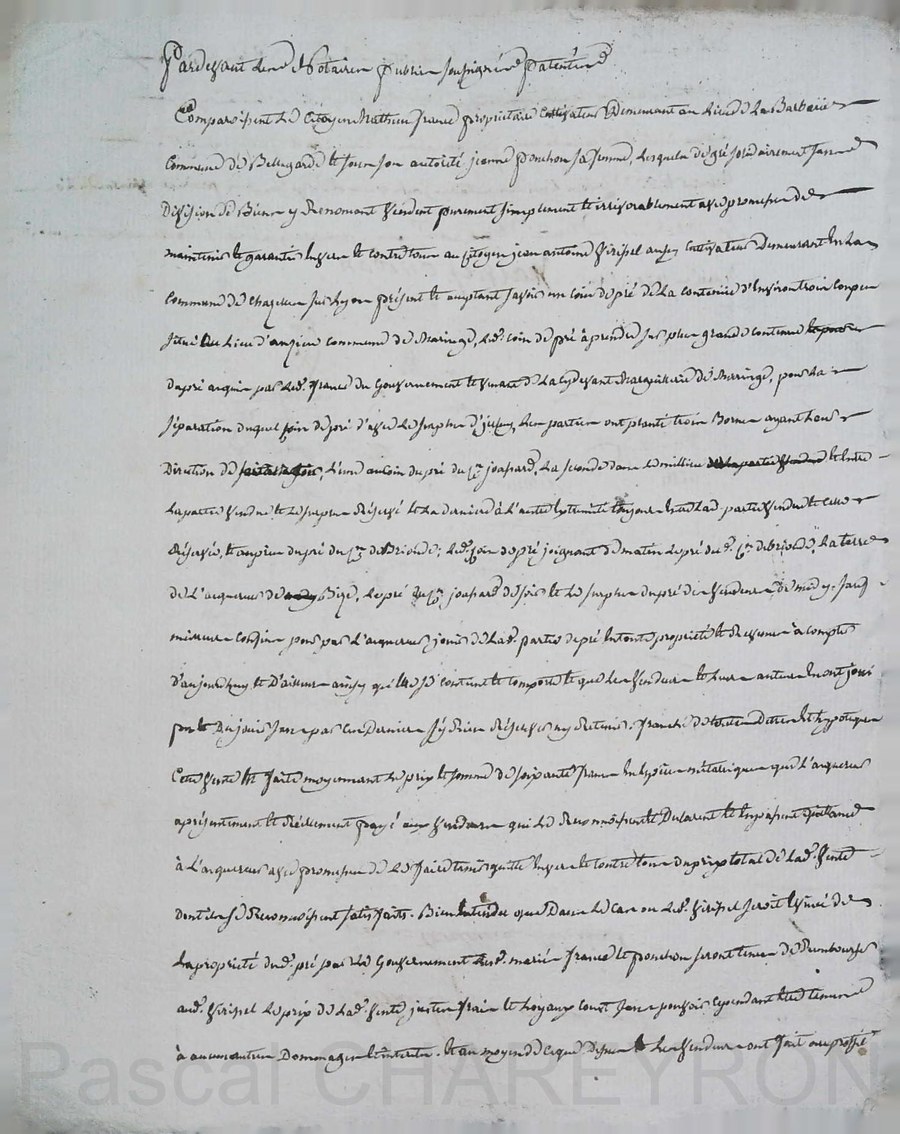 Pardevant Les Notaires publics soussignés Patentés
Comparoissent Le Citoyen Mathieu france propriétaire Cultivateur Demeurant au Lieu de La Barbarie
Commune de Bellegarde et sous son autorité jeanne ponchon sa femme, Lesquels de gré solidairement sans
Division de Biens y Renoncant Vendent purement simplement et irrévocablement avec promesse de
maintenir et garantir Envers et contre tous au Citoyen jean antoine Virissel aussy Cultivateur Demeurant En La
Commune de chazelles sur Lyon présent et acceptant savoir un coin de pré de La contenue d'Environ trois coupes
situé Au Lieu d' commune de Maringe, Led. coin de pré à prendre sur plus grande contenue
du pré acquis par Led. france du Gouvernement et venant de La cy devant Marquiserie de Maringe, pour La
séparation duquel coin de pré d'avec Le surplus d'jcelluy, Les parties ont planté trois Bornes ayant Leur
Direction de , L'une au coin du pré du Cn. jousard, La seconde dans Le millieu Entre
La partie Vendue et Le surplus Réservé et La dernière à L'autre Extremité toujours Entre Lad. partie Vendue et celle
Réservée, et au pres du pré du Cn. de Brioude; Led. coin de pré joignant de matin Le pré dud. Cn. de brioude, La terre
de L'acquereur de Bize, Le pré du Cn. jousard de soir et Le surplus du pré des Vendeurs De midy, sauf
meilleurs confins pour par L'acquereur jouir de Lad. partie de pré En toute propriété et Ressense à compter
D'aujourd'huy et D'ailleurs ainsy qu'Elle se contient et comporte et que Les Vendeurs et Leurs auteurs En ont joui
pu et Du jouir sans par Ces Derniers s'y Rien Réserver ny Retenir. franche de toutes Dettes et hypotèques
Cette Vente Est faite moyennant Le prix et somme de soixante francs En Espèces métaliques que L'acquereur
a présentement et Réellement payé aux Vendeurs qui Le Reconnoissent et Declarent et En passent quittance
à L'acquereur avec promesse de Le faire tenir quitte Envers et contre tous du prix total de Lad. Vente
Dont ils se Reconnoissent satisfaits. Bien Entendu que Dans Le Cas ou Led. Virissel seroit Evincé de
La propriété dud. pré par Le Gouvernement Lesd. mariés france et ponchon seront tenus de Rembourser
aud. Virissel Le prix de Lad. Vente, justes frais et Loyaux Couts sans pouvoir cependant Etre tenus
à aucuns autres Dommages Et intérets. Et au moyen de ce que Dessus Les Vendeurs ont fait au proffit
Pascal CHAREYRON